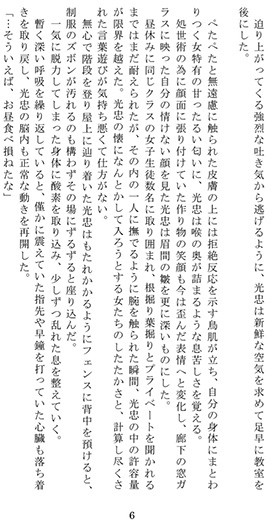 迫り上がってくる強烈な吐き気から逃げるように、光忠は新鮮な空気を求めて足早に教室を
後にした。
　べたべたと無遠慮に触られた皮膚の上には拒絶反応を示す鳥肌が立ち、自分の身体にまとわ
りつく女特有の甘ったるい匂いに、光忠は喉の奥が詰まるような息苦しさを覚える。
　処世術の為に顔面に張り付けていた作り物の笑顔も今は歪んだ表情へと変化し、廊下の窓ガ
ラスに映った自分の情けない顔を見た光忠は眉間の皺を更に深いものにした。
　昼休みに同じクラスの女子生徒数名に取り囲まれ、根掘り葉掘りとプライベートを聞かれる
まではまだ耐えられたが、その内の一人に撫でるように腕を触られた瞬間、光忠の中の許容量
が限界を越えた。光忠の懐になんとかして入ろうとする女たちのしたたかさと、計算し尽くさ
れた言葉遊びが気持ち悪くて仕方がない。
　無心で階段を登り屋上に辿り着いた光忠はもたれかかるようにフェンスに背中を預けると、
制服のズボンが汚れるのも構わずその場にずるずると座り込んだ。
　一気に脱力してしまった身体に酸素を取り込み、少しずつ乱れた息を整えていく。
　暫く深い呼吸を繰り返していると、僅かに震えていた指先や早鐘を打っていた心臓も落ち着
きを取り戻し、光忠の脳内も正常な動きを再開した。
「…そういえば、お昼食べ損ねたな」
6